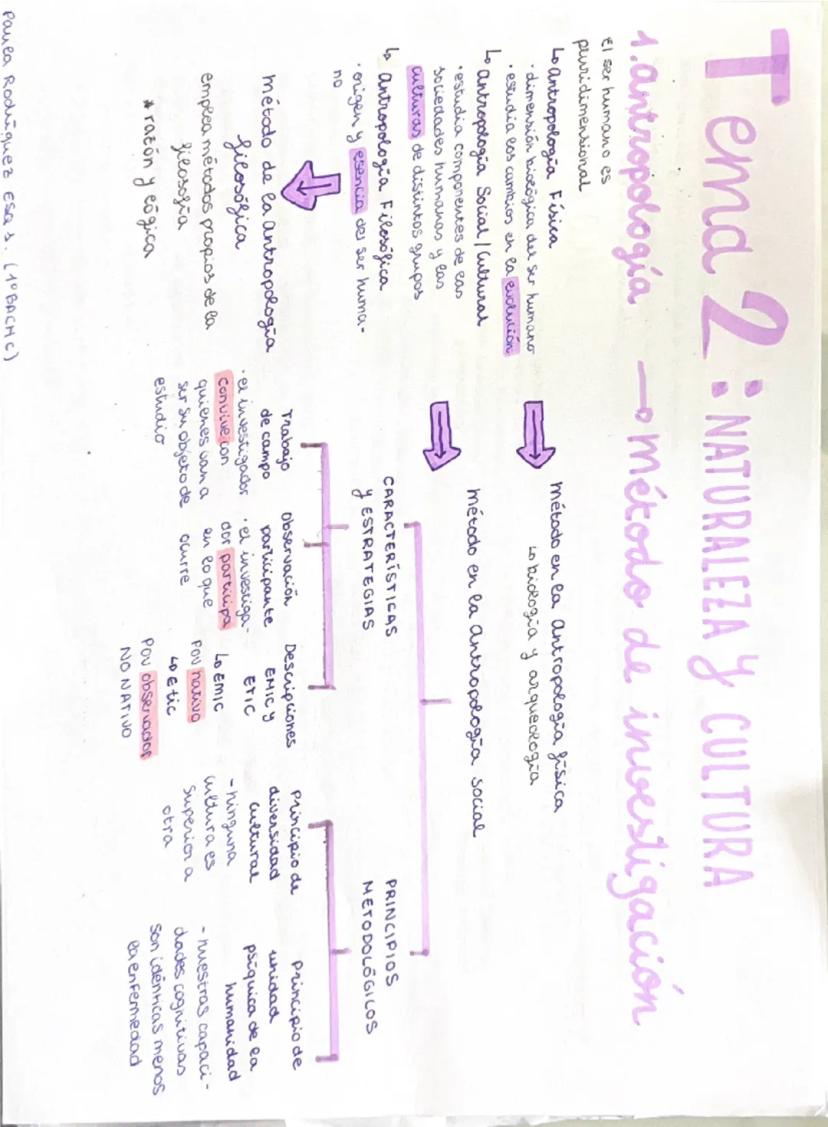 Tema 2: NATURALEZA Y CULTURA
1. antropología → método de investigación
el ser humano es
pluridimensional
↳ Antropología Física
· dimensión biológica del ser humano
· estudia los cambios en la evolución
↳ Antropología Social / Cultural
· estudia componentes de las
sociedades humanas y las
culturas de distintos grupos
↳ Antropología Filosófica
· origen y esencia del ser huma-
no
método en la Antropología física
↳ biología y arqueología
método en la Antropología social
CARACTERÍSTICAS
Y ESTRATEGIAS
PRINCIPIOS
METODOLÓGICOS
Método de la Antropología
filosófica
emplea métodos propios de la
filosofía
* razón y lógica
Trabajo
de campo
· el investigador
convive con
quienes van a
ser su objeto de
estudio
Observación
participante
· el investiga-
dor participa
en lo que
ocurre
Descripciones
EMIC y
ETIC
↳ EMIC
POV nativo
↳ Etic
POV observador
NO NATIVO
Principio de
diversidad
cultural
- ninguna
cultura es
superior a
otra
Principio de
unidad
psíquica de la
humanidad
- nuestras capaci-
dades cognitivas
son idénticas menos
la enfermedad